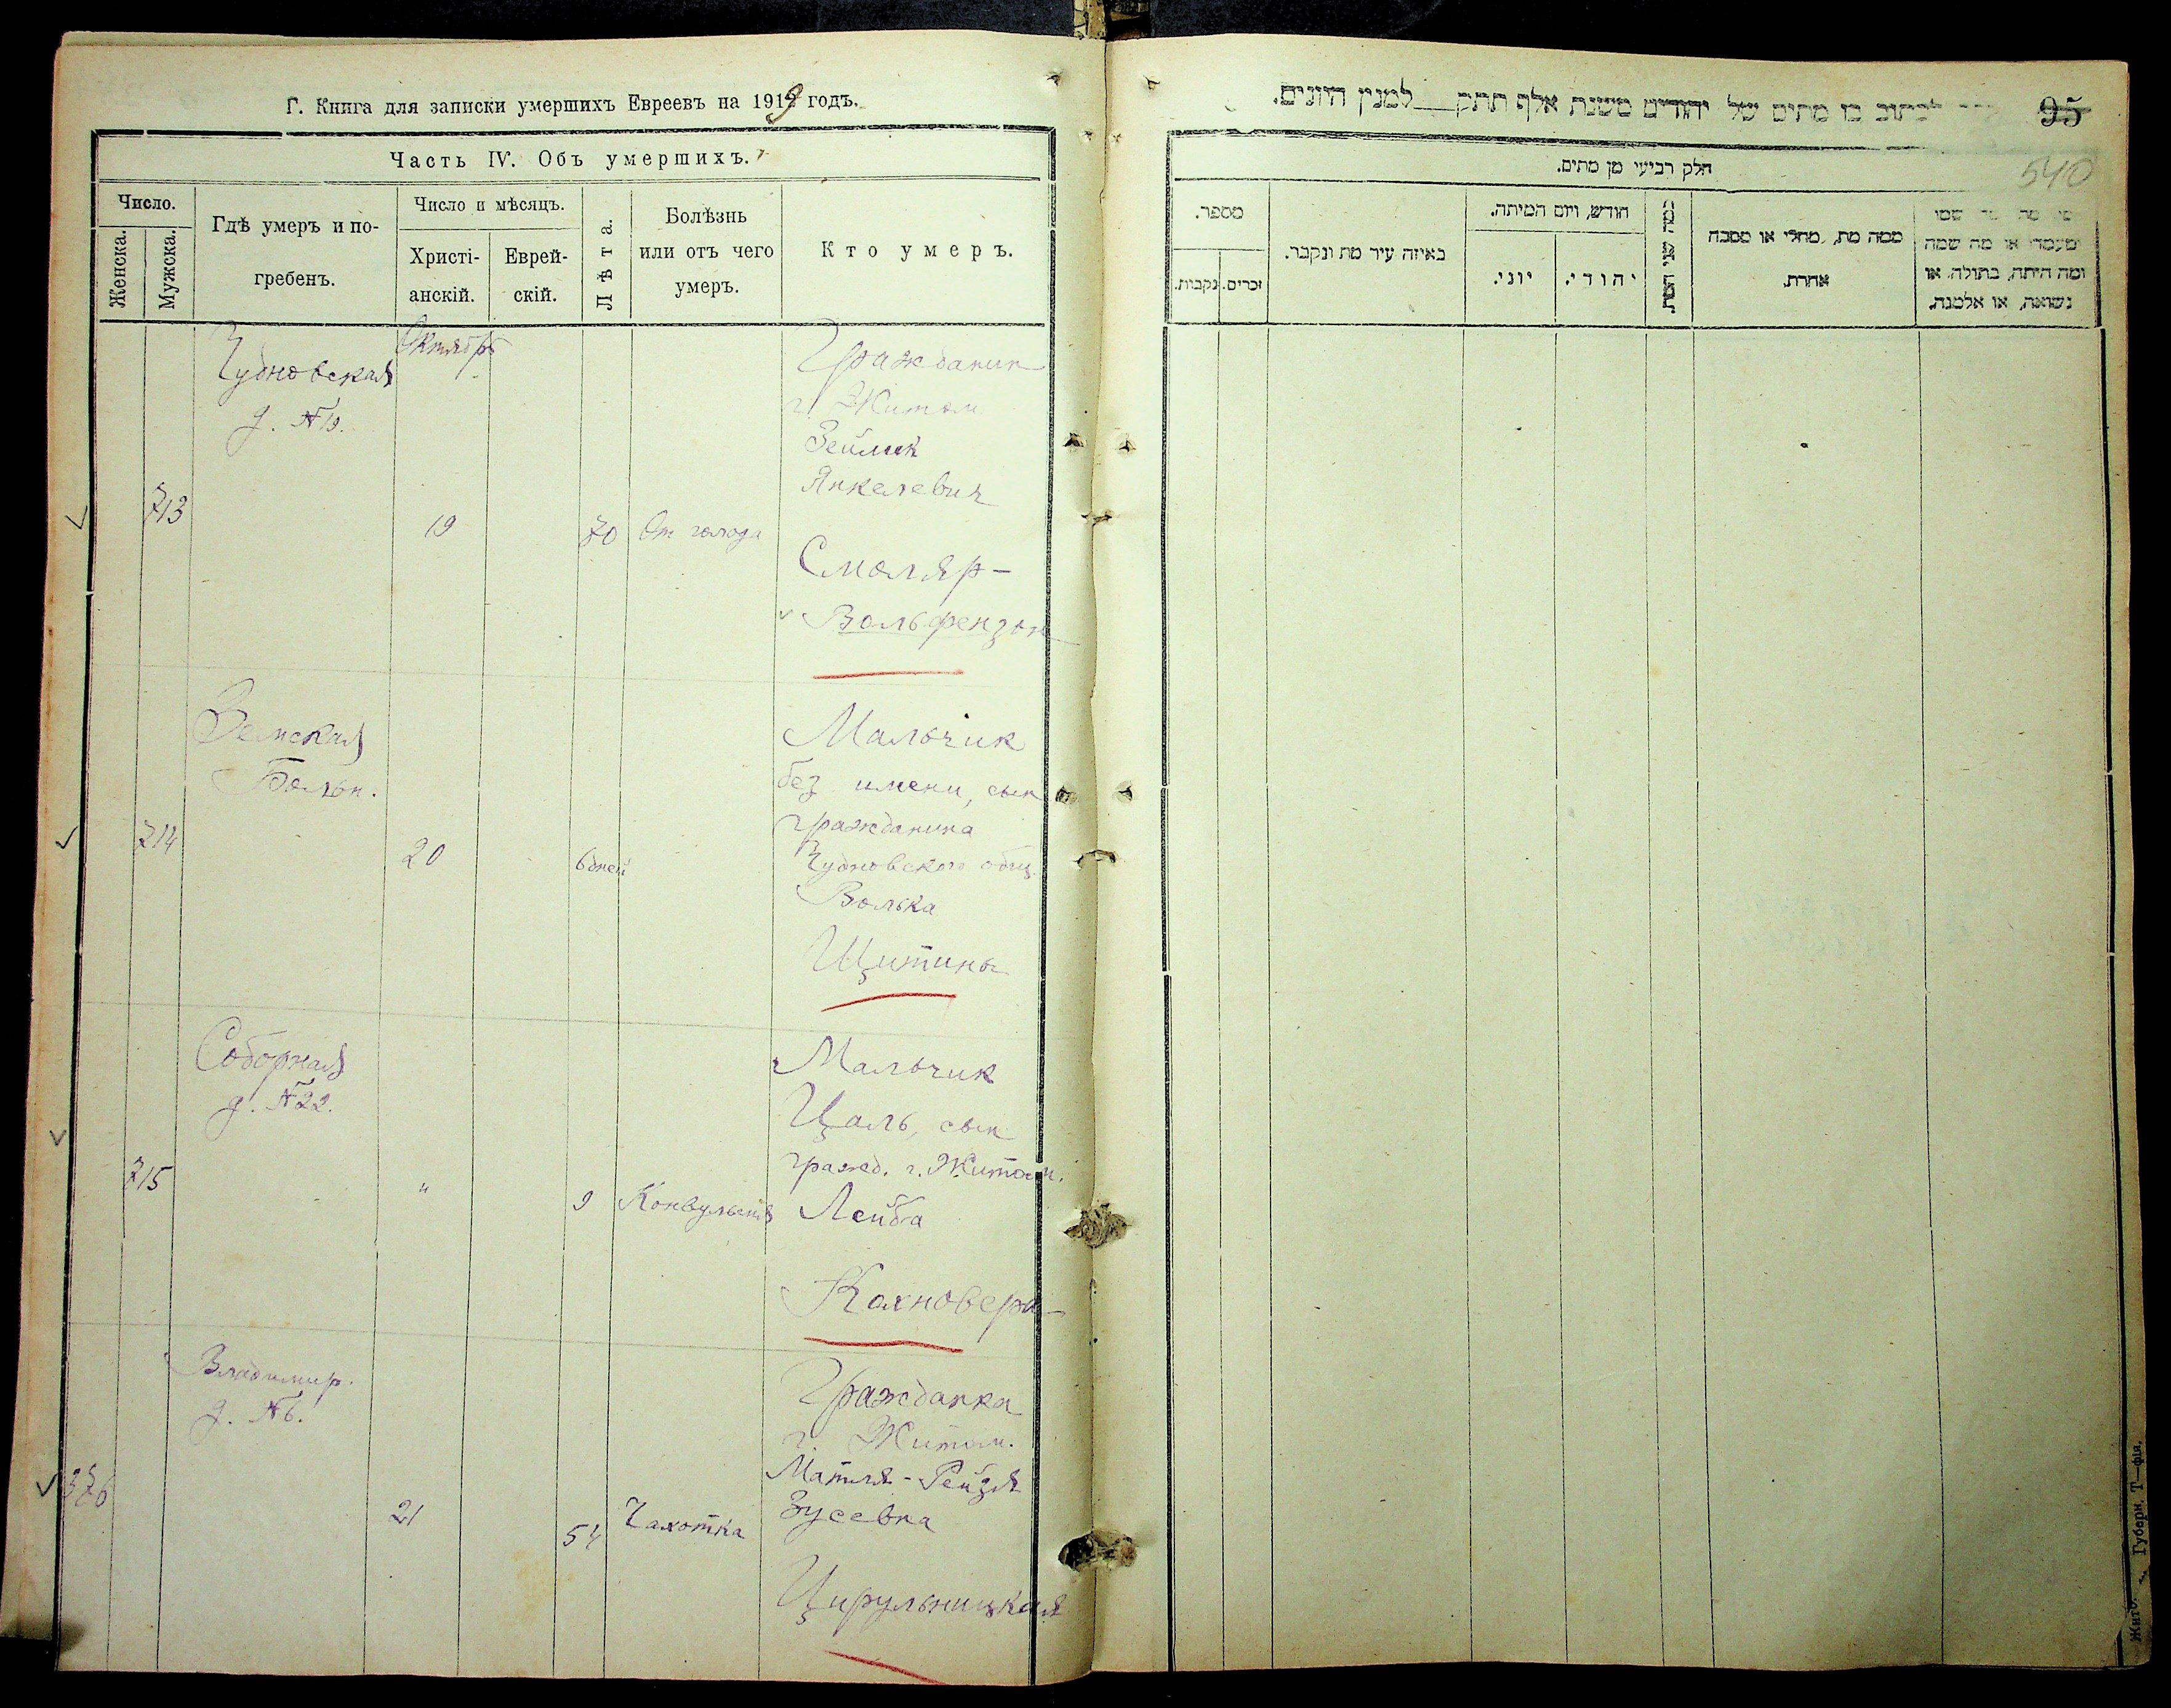 Г. Книга для записки умершихъ Евреевъ на 1919 годъ.
Часть IV. Объ умершихъ.
Число.
Женска.
Мужска.
Гдѣ умеръ и по-
гребенъ.
Число и мѣсяцъ.
Христі-
анскій.
Еврей-
скій.
Лѣта.
Болѣзнь
или отъ чего
умеръ.
Кто умеръ.
713
Чудновская
д. №19.
Октябрь
19
70
От голода
Гражданин
г. Житом.
Зейлик
Янкелевич
Смоляр-
Вольфензон
714
Земская
Больн.
20
6 дней
Мальчик
без имени, сын
гражданина
Чудновского общ.
Волька
Щитина
715
Соборная
д. №22.
"
9
Конвульсия
Мальчик
Цаль, сын
гражд. г. Житом.
Лейба
376
Владимир.
д. №6.
21
54
Чахотка
Гражданка
г. Житом.
Матля-Рейзя
Зусевна
Цирульницкая
95
540
לכתוב בו מתים של יהודים משנת אלף תתק__למנין היונים.
חלק רביעי מן מתים.
מספר.
זכרים.
נקבות.
באיזה עיר מת ונקבר.
חודש, ויום המיתה.
יוני.
יהודי.
כמה שני המת.
ממה מת, מחלי או מסבה
אחרת.
ומעמדו או מה שמה
ומה היתה, בתולה, או
נשואה, או אלמנה.
Губерн. Т—фія.